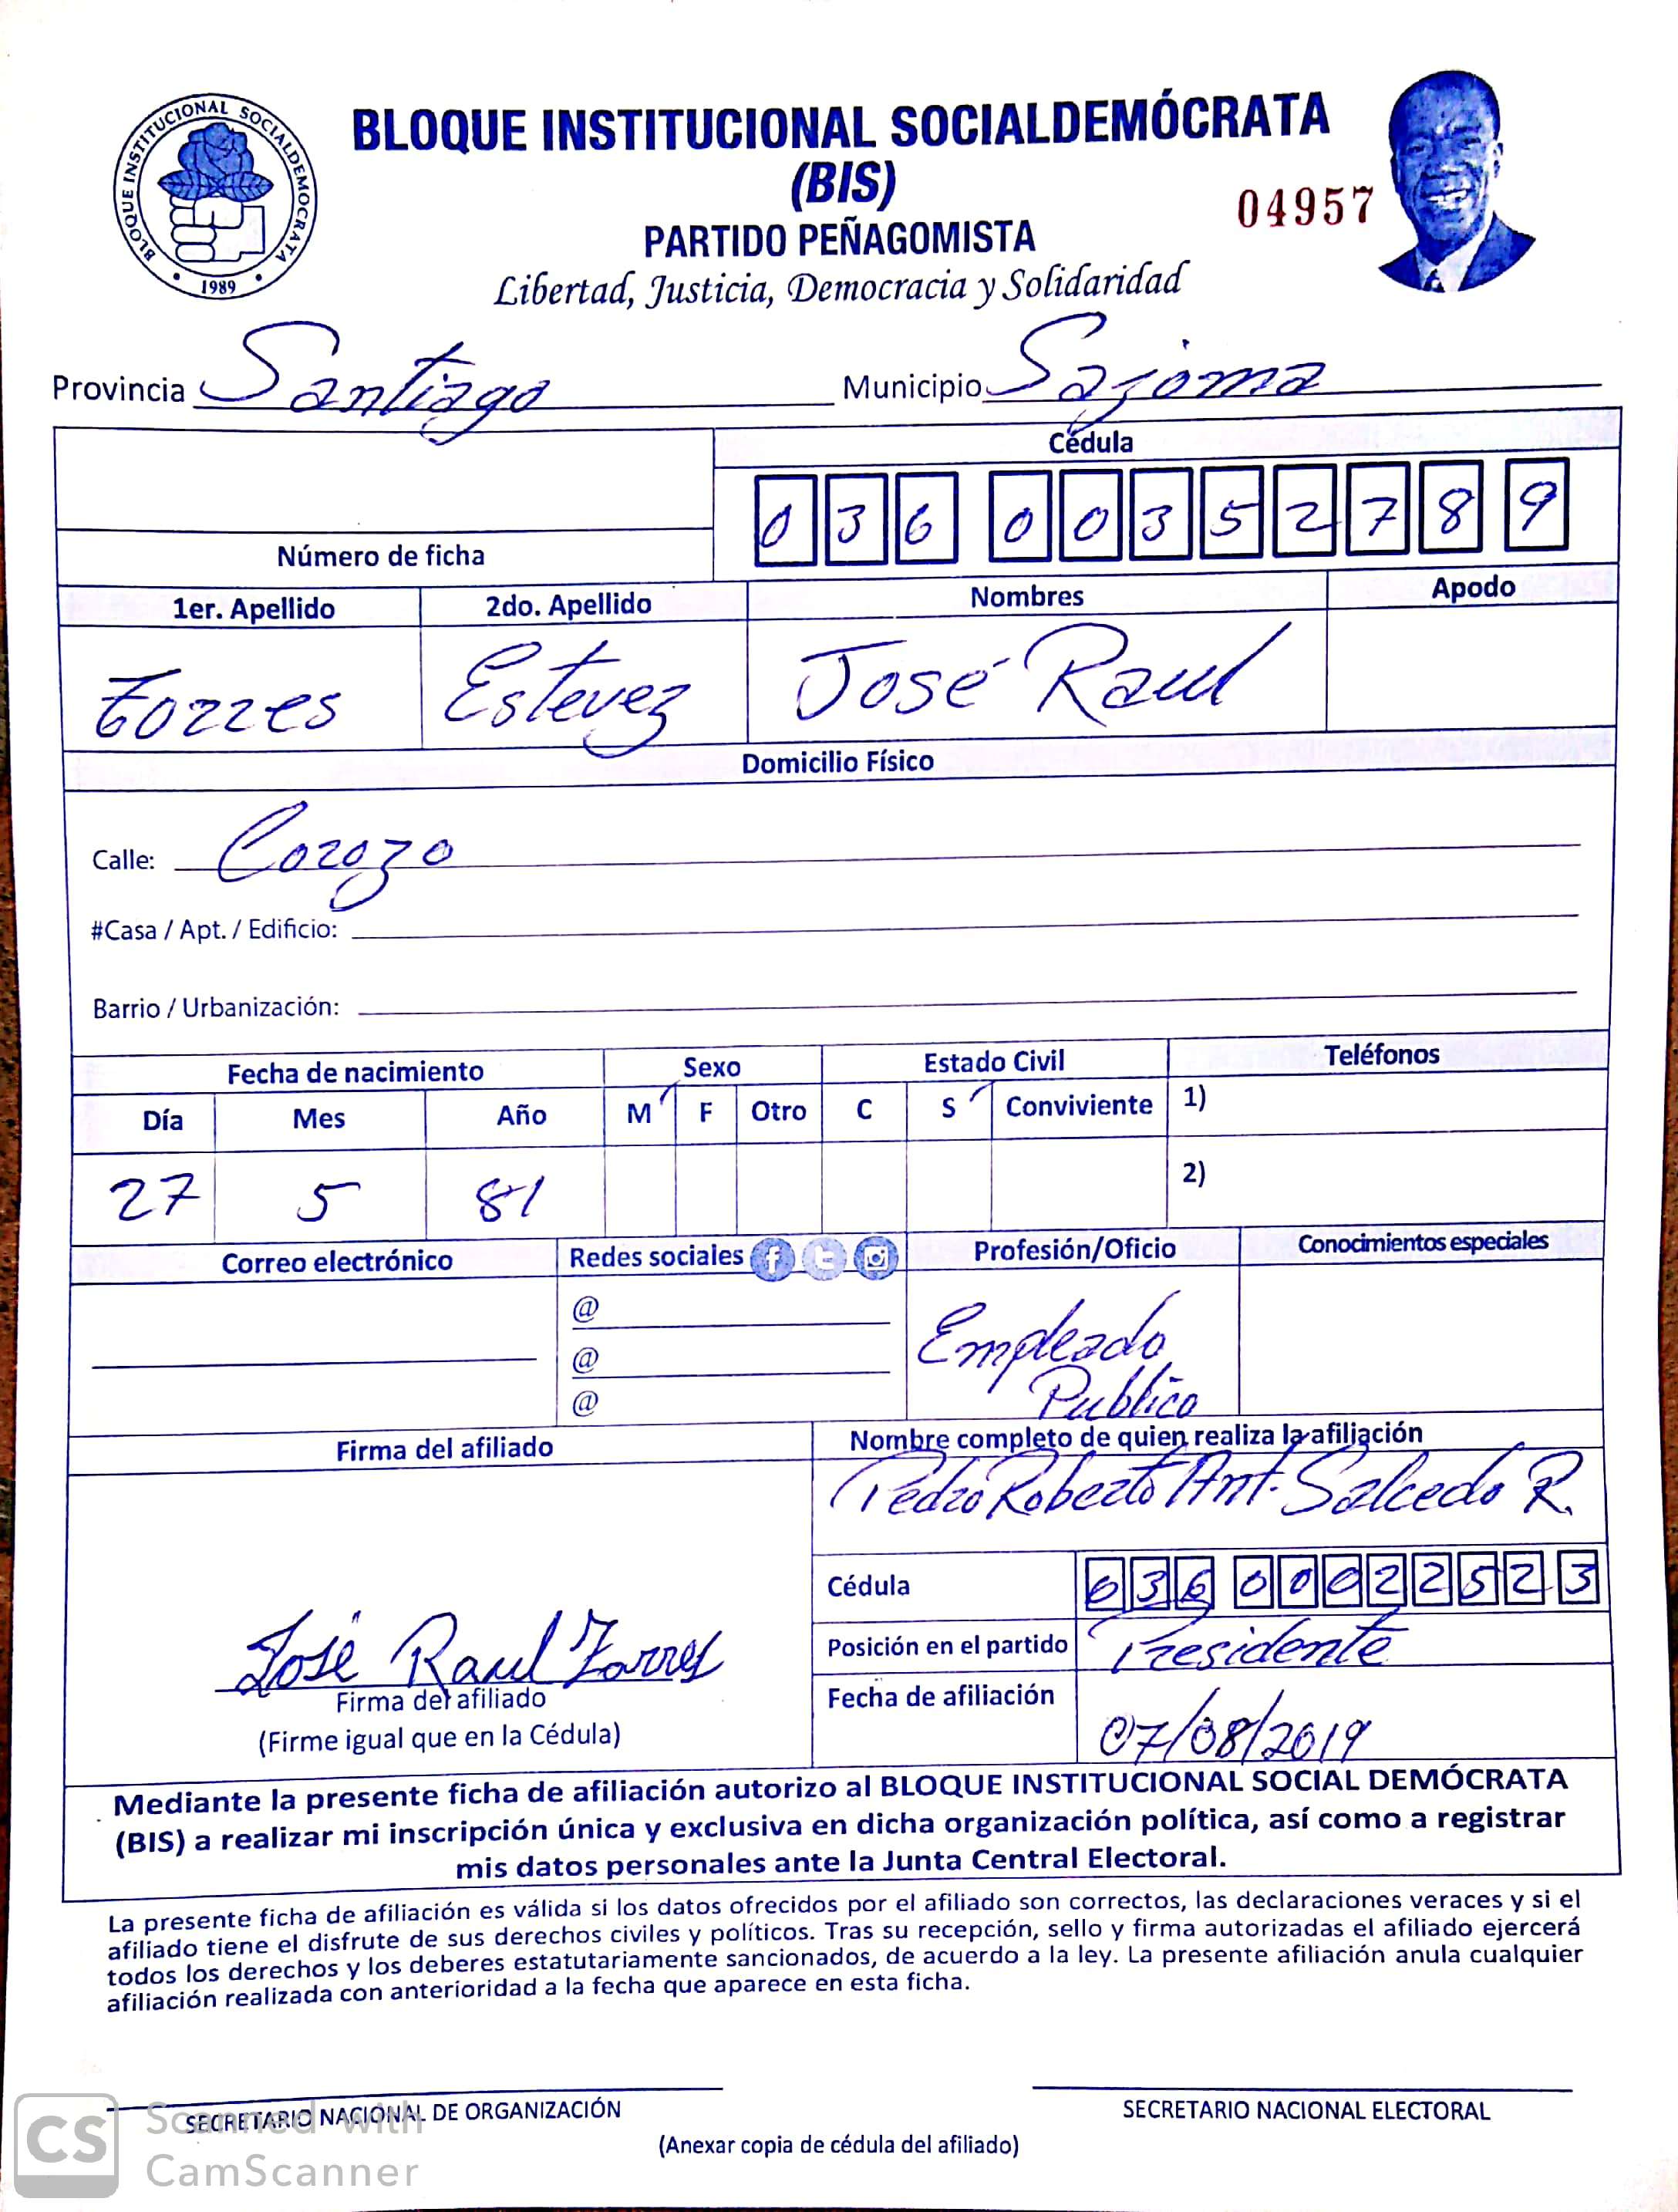 BLOQUE INSTITUCIONAL SOCIALDEMOCRATA
1989
BLOQUE INSTITUCIONAL SOCIALDEMÓCRATA
(BIS)
04957
PARTIDO PEÑAGOMISTA
Libertad, Justicia, Democracia y Solidaridad
Provincia Santiago Municipio Sajoma
Cédula
036 0035278 9
Número de ficha
1er. Apellido 2do. Apellido Nombres Apodo
Torres Estevez José Raul
Domicilio Físico
Calle: Corozo
#Casa / Apt. / Edificio:
Barrio / Urbanización:
Fecha de nacimiento Sexo Estado Civil Teléfonos
Día Mes Año M F Otro C S Conviviente 1)
27 5 81 2)
Correo electrónico Redes sociales Profesión/Oficio Conocimientos especiales
@
@
@
Empleado
Publico
Firma del afiliado Nombre completo de quien realiza la afiliación
Pedro Roberto Ant. Salcedo R.
Cédula 036 0002252 3
José Raul Torres
Posición en el partido Presidente
Firma del afiliado
Fecha de afiliación 07/08/2019
(Firme igual que en la Cédula)
Mediante la presente ficha de afiliación autorizo al BLOQUE INSTITUCIONAL SOCIAL DEMÓCRATA
(BIS) a realizar mi inscripción única y exclusiva en dicha organización política, así como a registrar
mis datos personales ante la Junta Central Electoral.
La presente ficha de afiliación es válida si los datos ofrecidos por el afiliado son correctos, las declaraciones veraces y si el
afiliado tiene el disfrute de sus derechos civiles y políticos. Tras su recepción, sello y firma autorizadas el afiliado ejercerá
todos los derechos y los deberes estatutariamente sancionados, de acuerdo a la ley. La presente afiliación anula cualquier
afiliación realizada con anterioridad a la fecha que aparece en esta ficha.
SECRETARIO NACIONAL DE ORGANIZACIÓN SECRETARIO NACIONAL ELECTORAL
(Anexar copia de cédula del afiliado)
CS Scanned with
CamScanner